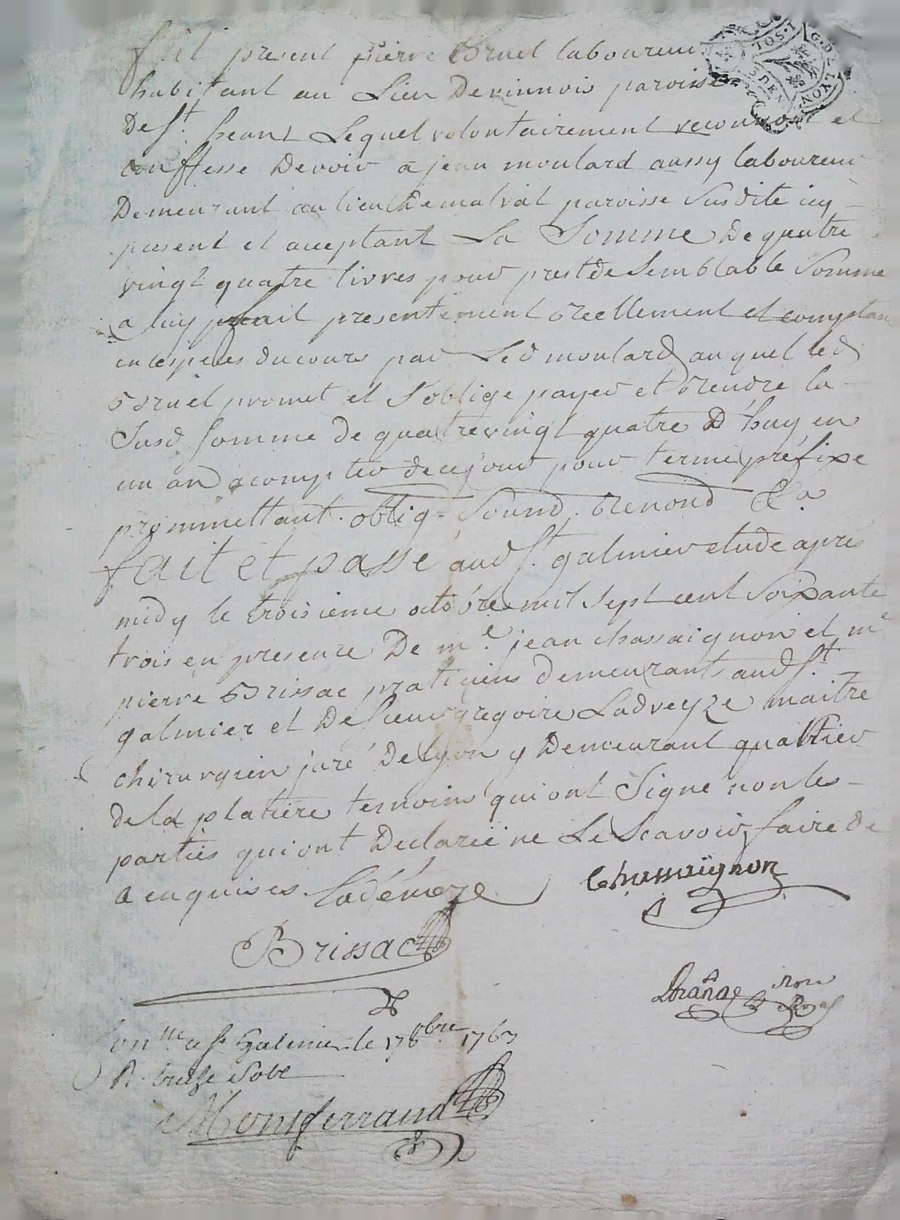 fut present pierre Bruel laboureur
habitant au Lieu De vinnois paroisse
De St. heant Lequel volontairement reconnoit et
conffesse Devoir a jean moulard aussy laboureur
Demeurant au lieu De malval paroisse Susdite icy
present et aceptant La Somme De quatre
vingt quatre livres pour prest de Semblable Somme
a luy fait presentement Reellement et comptant
en especes du cours par Led moulard auquel led
Bruel promet et S'oblige payer et Rendre la
Susd Somme de quatre vingt quatre D'huy en
un an a compter de ce jour pour terme préfixe
prommettant. oblig= Soumd. Renond &a
fait et passé aud St. galmier etude apres
midy le troisieme octobre mil sept cent Soixante
trois en presence De me. jean chassaignon et me
pierre Brissac praticiens demeurants aud St.
galmier et De Sieur gregoire Ladveyze maitre
chirurgien juré De lyon y Demeurant quartier
de la platiere temoins qui ont Signé non les
parties qui ont Declarée ne Le Scavoir faire de
ce enquises. Ladeveze
Chassaignon
Brissac
Con.lle a St. Galmier le 17 8bre 1763
R. treize Sols
Montferrand
G.D. LYON